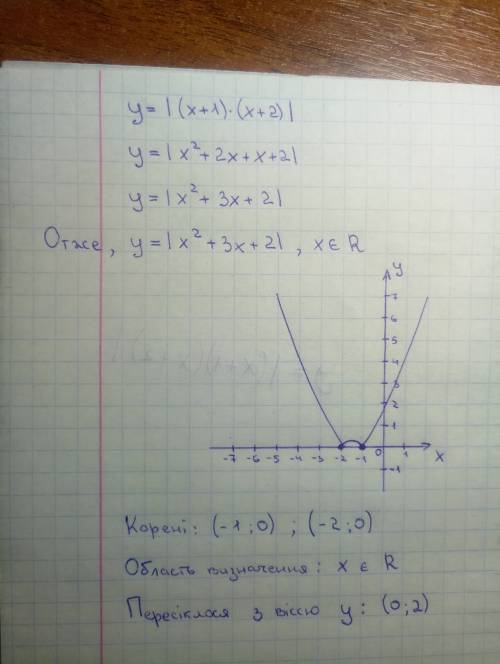 y = |(x+1)·(x+2)|
y = |x² + 2x + x + 2|
y = |x² + 3x + 2|
Отже, y = |x² + 3x + 2|, x ∈ R
y
7
6
5
4
3
2
1
-7 -6 -5 -4 -3 -2 -1 0 1 x
-1
Корені: (-1;0) ; (-2;0)
Область визначення: x ∈ R
Пересіклася з віссю y: (0;2)